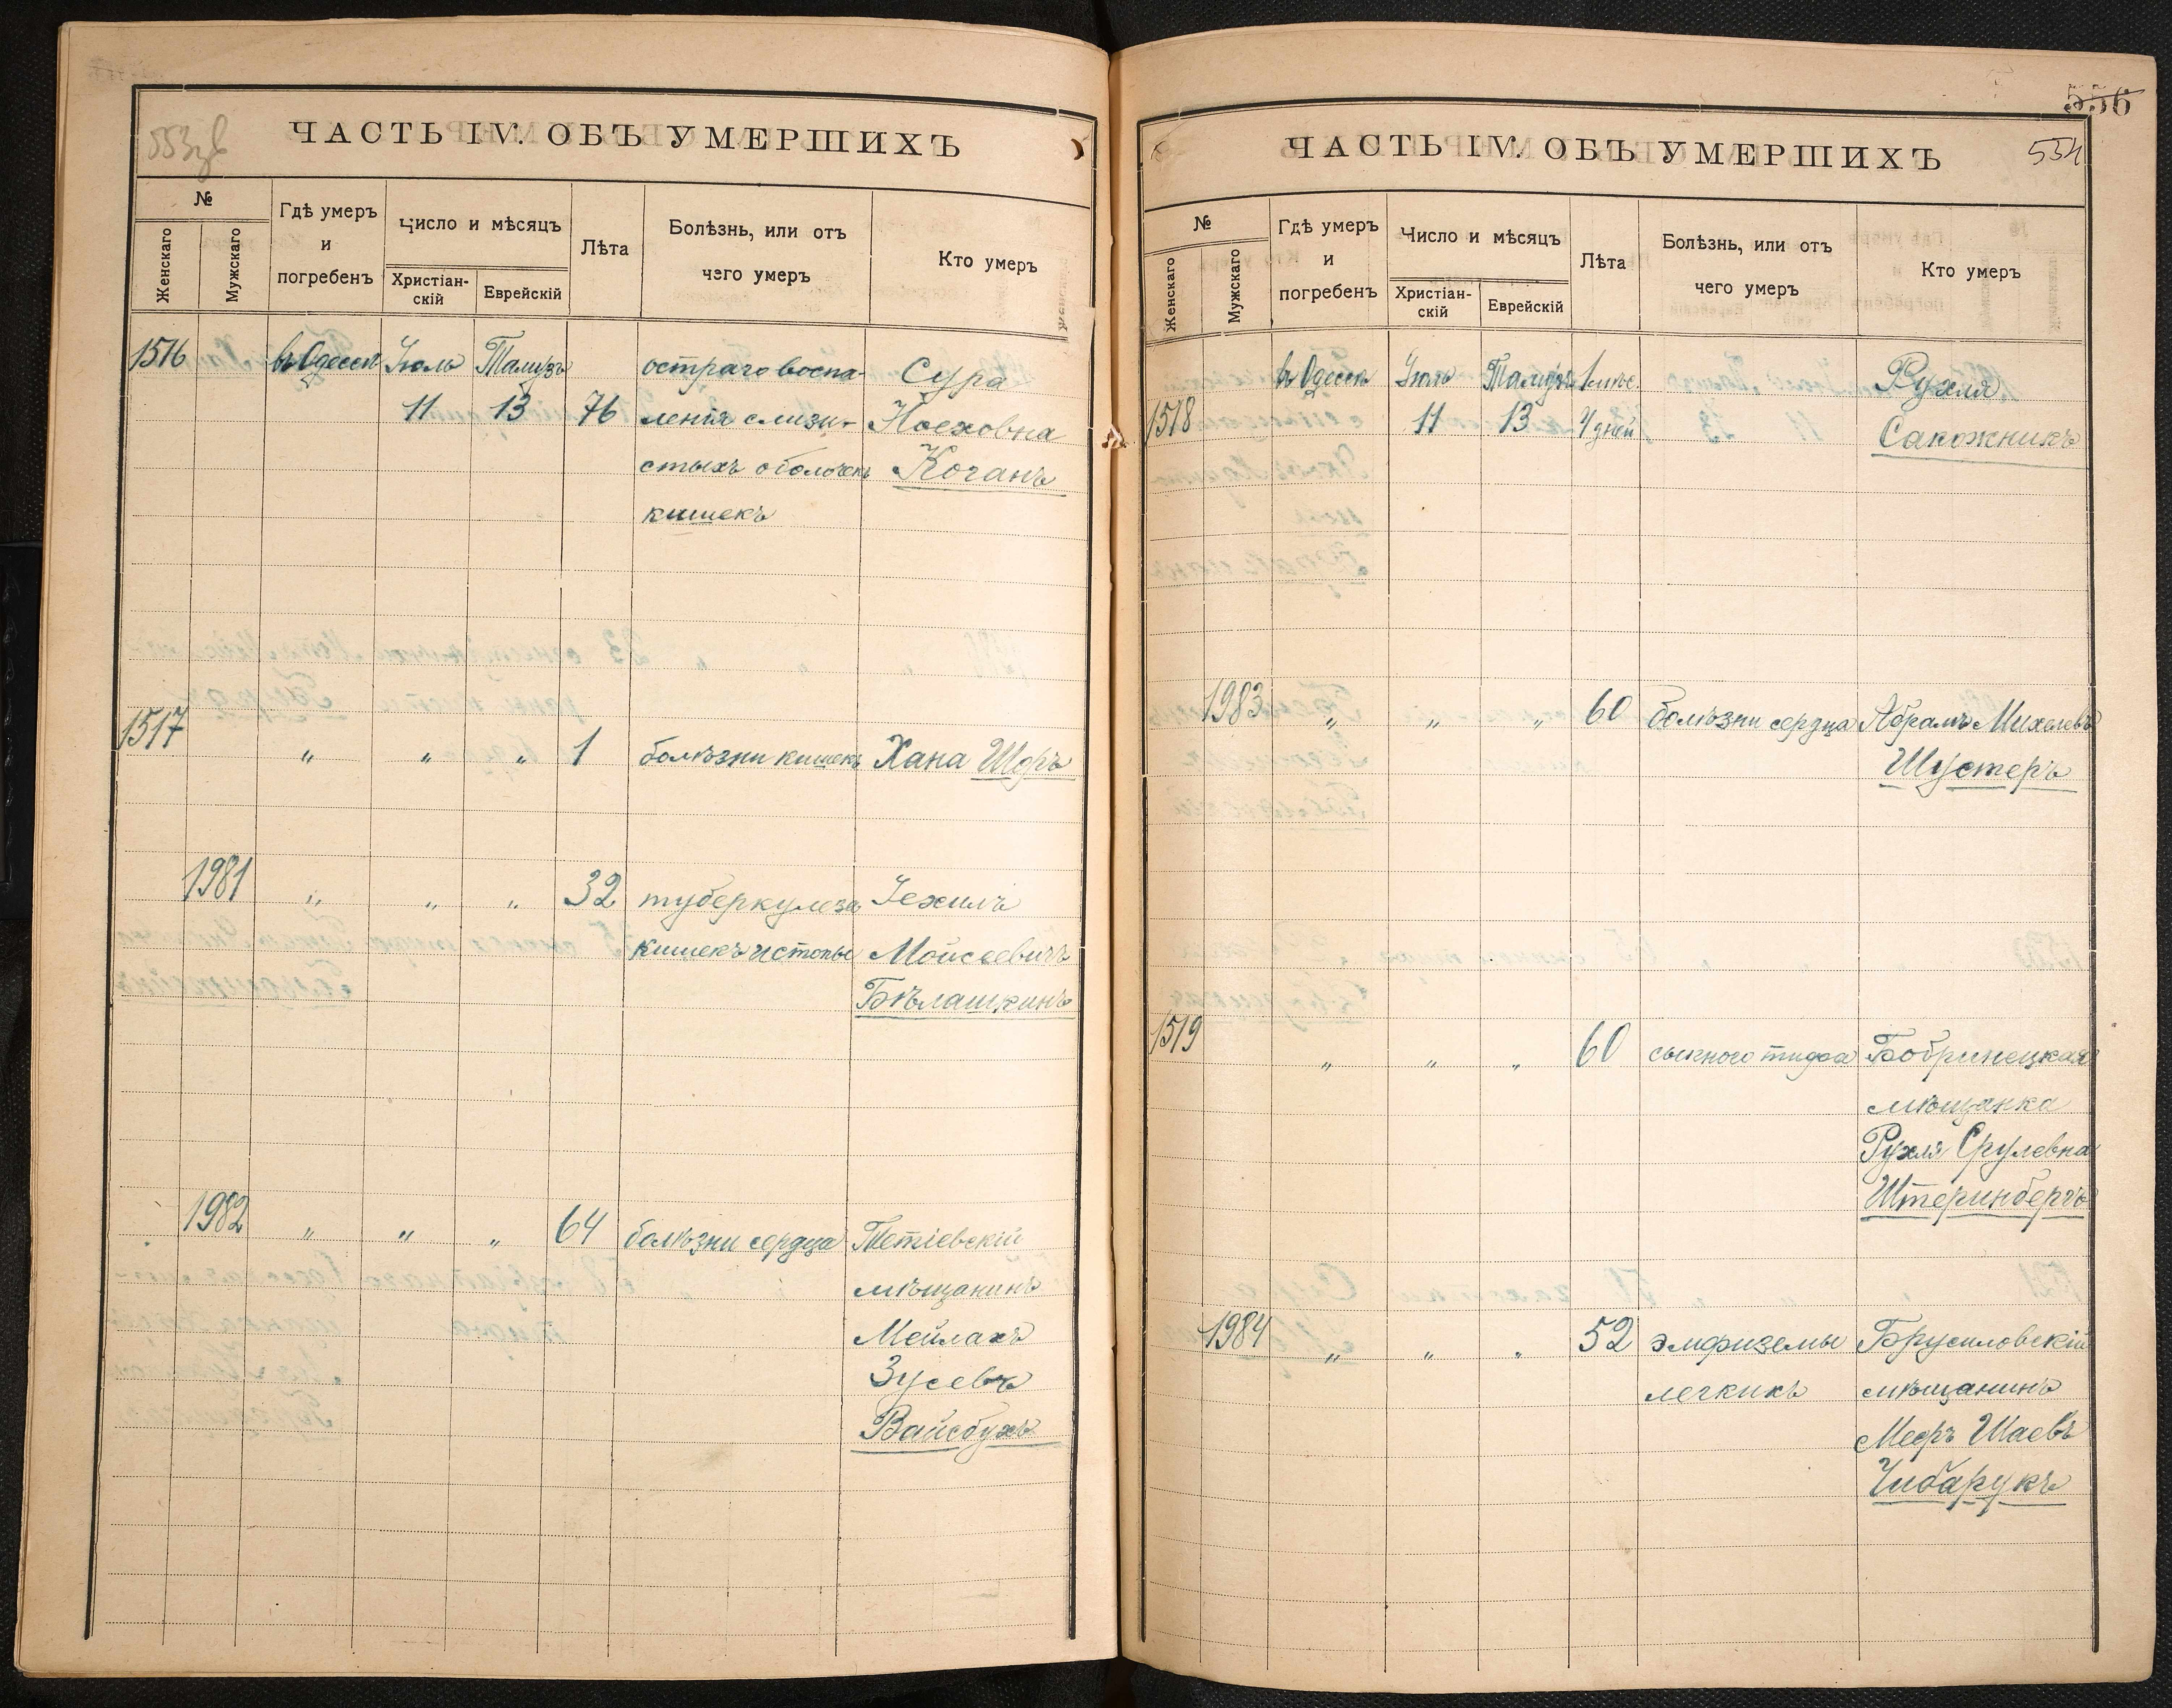 553 об
ЧАСТЬ IV. ОБЪ УМЕРШИХЪ
№
Женскаго
Мужскаго
Гдѣ умеръ
и
погребенъ
Число и мѣсяцъ
Христіан-
скій
Еврейскій
Лѣта
Болѣзнь, или отъ
чего умеръ
Кто умеръ
1516 въ Одессѣ Іюль Тамузъ остраго воспа- Сура
11 13 76 ленія слизи- Ноеховна
стыхъ оболочекъ Коганъ
кишекъ
1517 „ „ „ 1 болѣзни кишекъ Хана Шоръ
1981 „ „ „ 32 туберкулеза Іехилъ
кишекъ Мойсеевичъ
Бѣлашкинъ
1982 „ „ „ 64 болѣзни сердца Тетіевскій
мѣщанинъ
Мейлахъ
Зусевъ
Вайсбухъ
556
554
ЧАСТЬ IV. ОБЪ УМЕРШИХЪ
№
Женскаго
Мужскаго
Гдѣ умеръ
и
погребенъ
Число и мѣсяцъ
Христіан-
скій
Еврейскій
Лѣта
Болѣзнь, или отъ
чего умеръ
Кто умеръ
въ Одессѣ Іюль Тамузъ 1 мѣс. Рухля
1518 11 13 4 дней Сакожникъ
1983 „ „ „ 60 болѣзни сердца Абрамъ Михелевъ
Шустеръ
1519 „ „ „ 60 сыпного тифа Бобринецкая
мѣщанка
Рухля Срулевна
Штеринбергъ
1984 „ „ „ 52 эмфиземы Брусиловскій
легкихъ мѣщанинъ
Мееръ Шаевъ
Чибарукъ